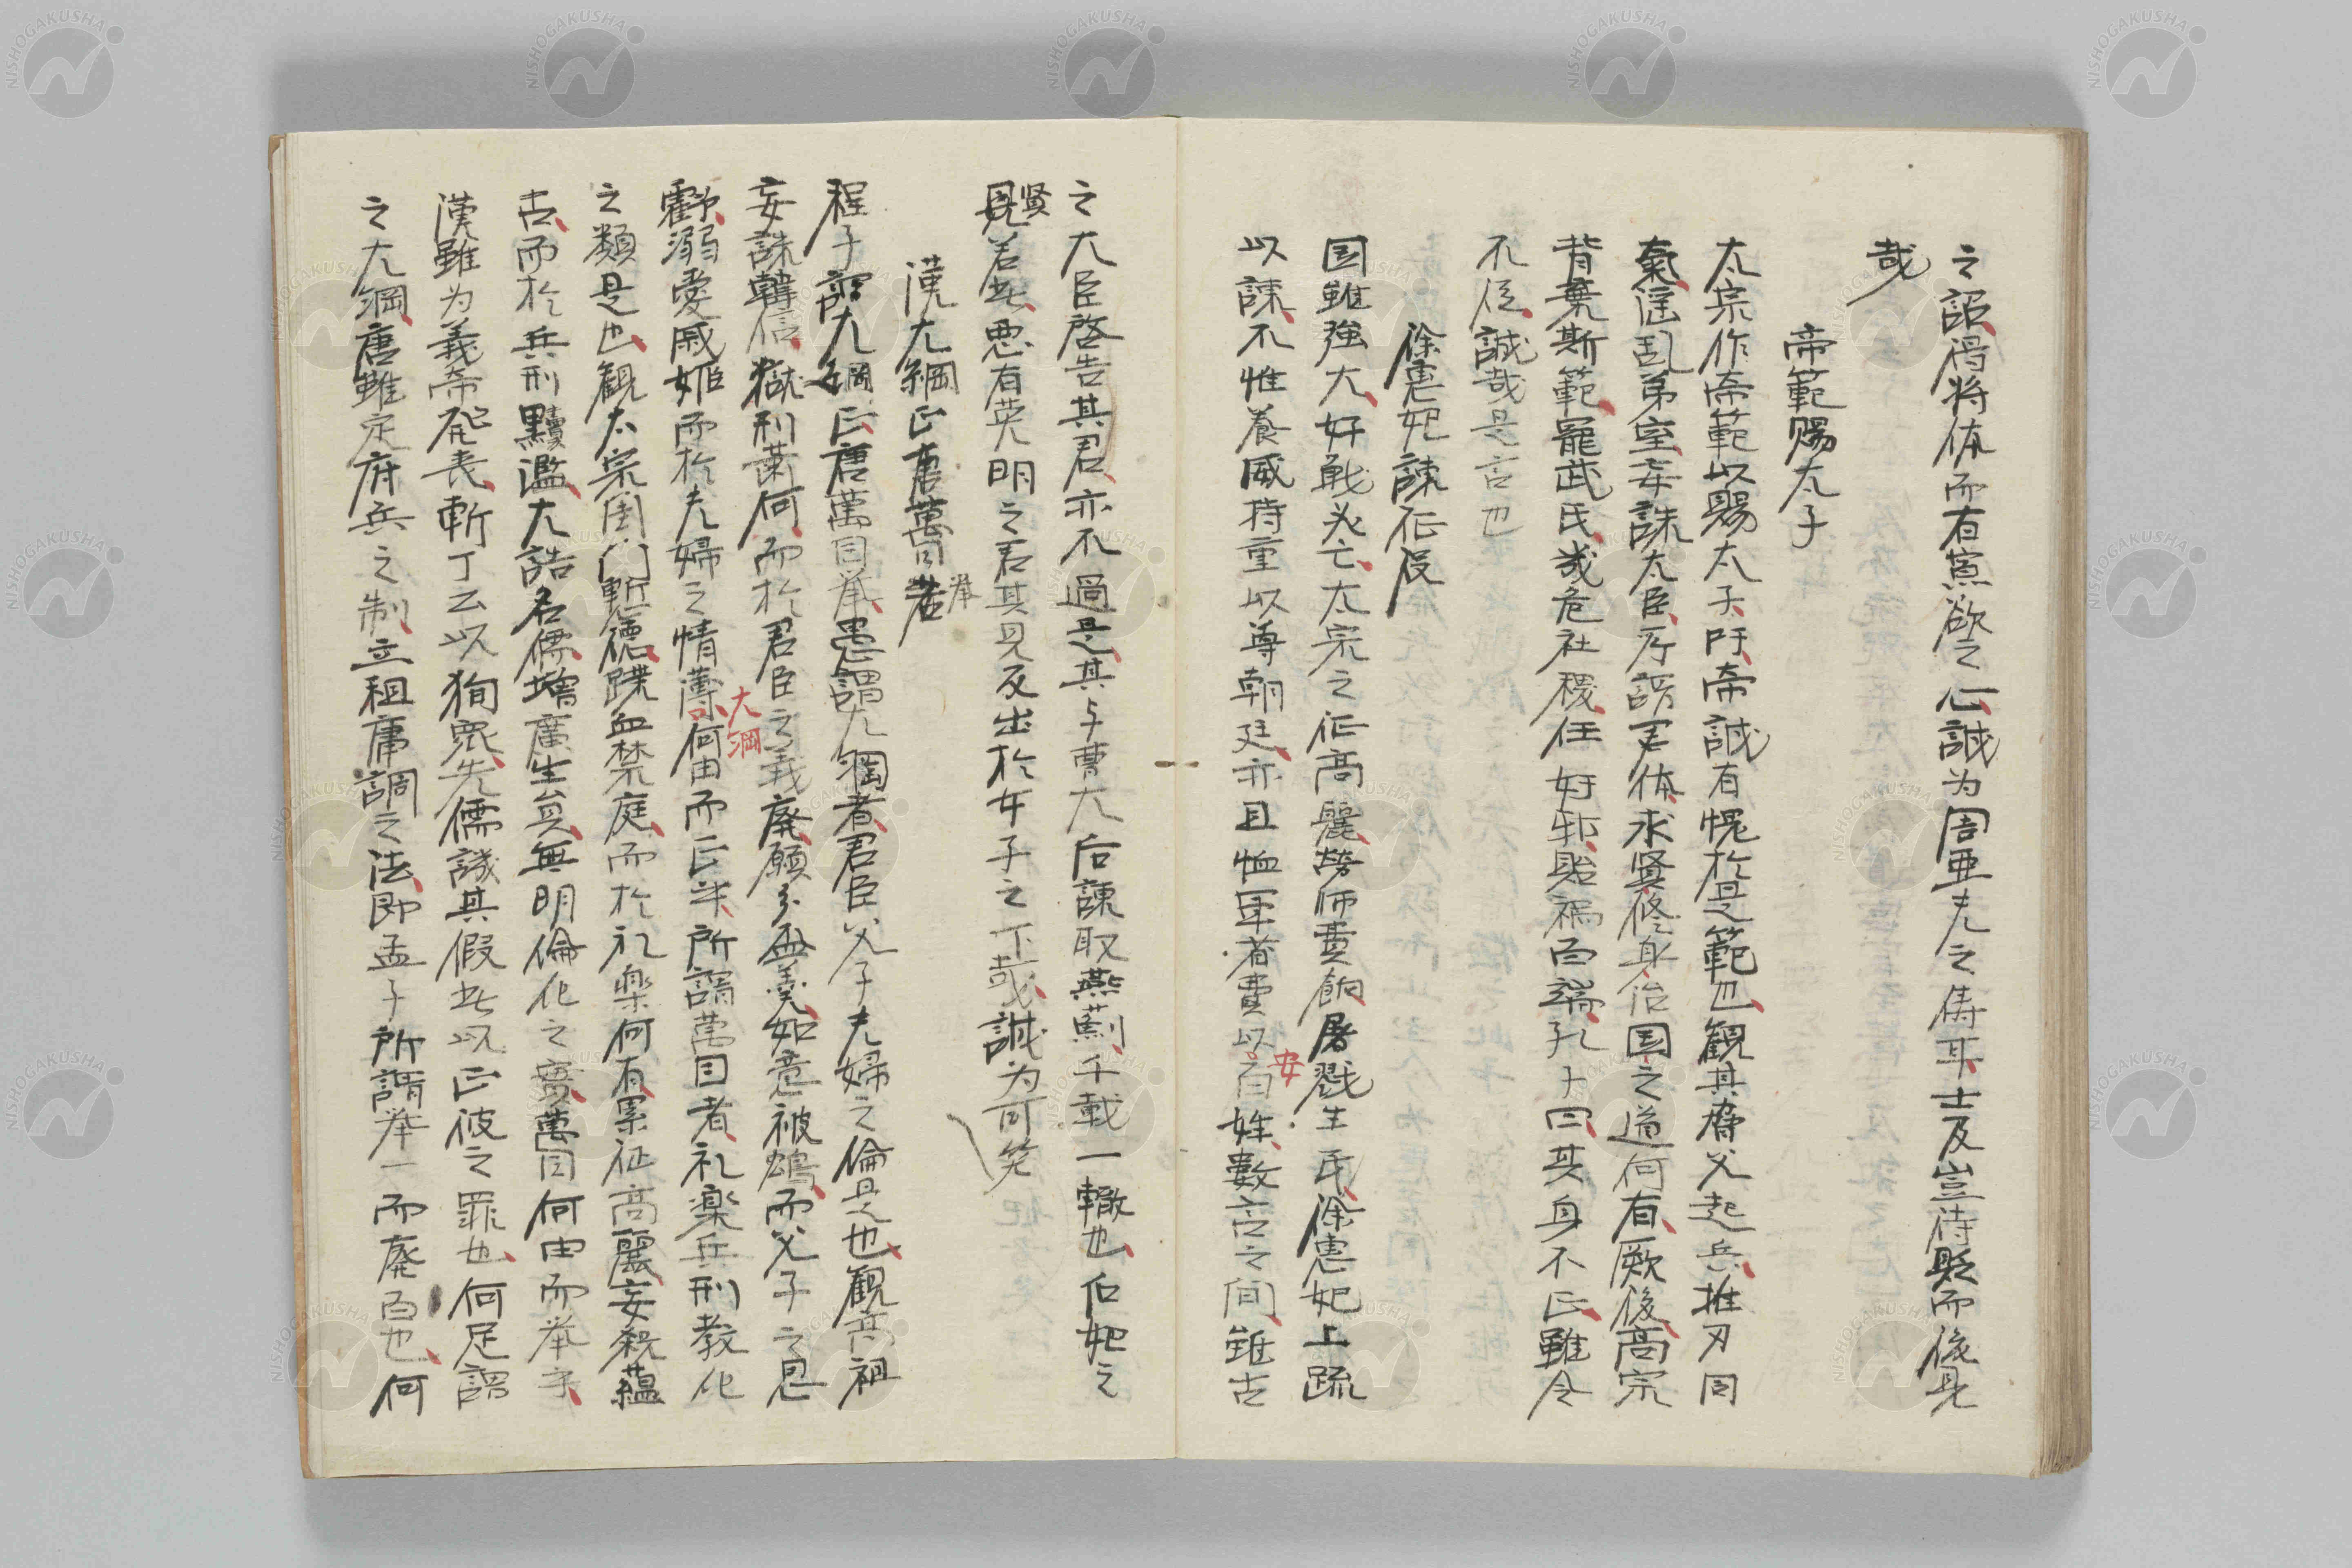 之詔得将体而有窺欲之心誠为周亜夫之俦耳士及豈待貶而後見
哉
帝範賜太子
太宗作帝範以賜太子吁帝誠有愧於是範也観其脅父起兵推刃同
氣淫乱弟室妄誅大臣所謂君体求賢修身治国之道何有厥後高宗
背棄斯範寵武氏幾危社稷任好邪貽禍百端孔子曰其身不正雖令
不従誠哉是言也
徐惠妃諫征役
国雖強大好戦必亡太宗之征高麗労師費餉屠戮生民徐惠妃上疏
以諫不惟養威持重以尊朝廷亦且恤軍省費以安百姓数言之间雖古
之大臣啓告其君亦不過是其与曹大后諫取燕薊千載一轍也后妃之
賢見若此悪有英明之君其見反出於女子之下哉誠为可笑
漢大綱正唐萬目举
程子謂大綱正唐萬目举愚謂大綱者君臣父子夫婦之倫是也観高祖
妄誅韓信獄刑蕭何而於君臣之義廃願分盃羹如意被鴆而父子之恩
虧溺愛戚姬而於夫婦之情薄大綱何由而正乎所謂萬目者礼楽兵刑教化
之類是也観太宗閨门慙徳蹀血禁庭而於礼楽何有累征高麗妄殺蘊
古而於兵刑黷濫大誥名儒増廣生員無明倫化之實萬目何由而举乎
漢雖为義帝発表斬丁公以狥衆先儒譏其假此以正彼之罪也何足謂
之大綱唐雖定府兵之制立租庸調之法即孟子所謂举一而廃百也何